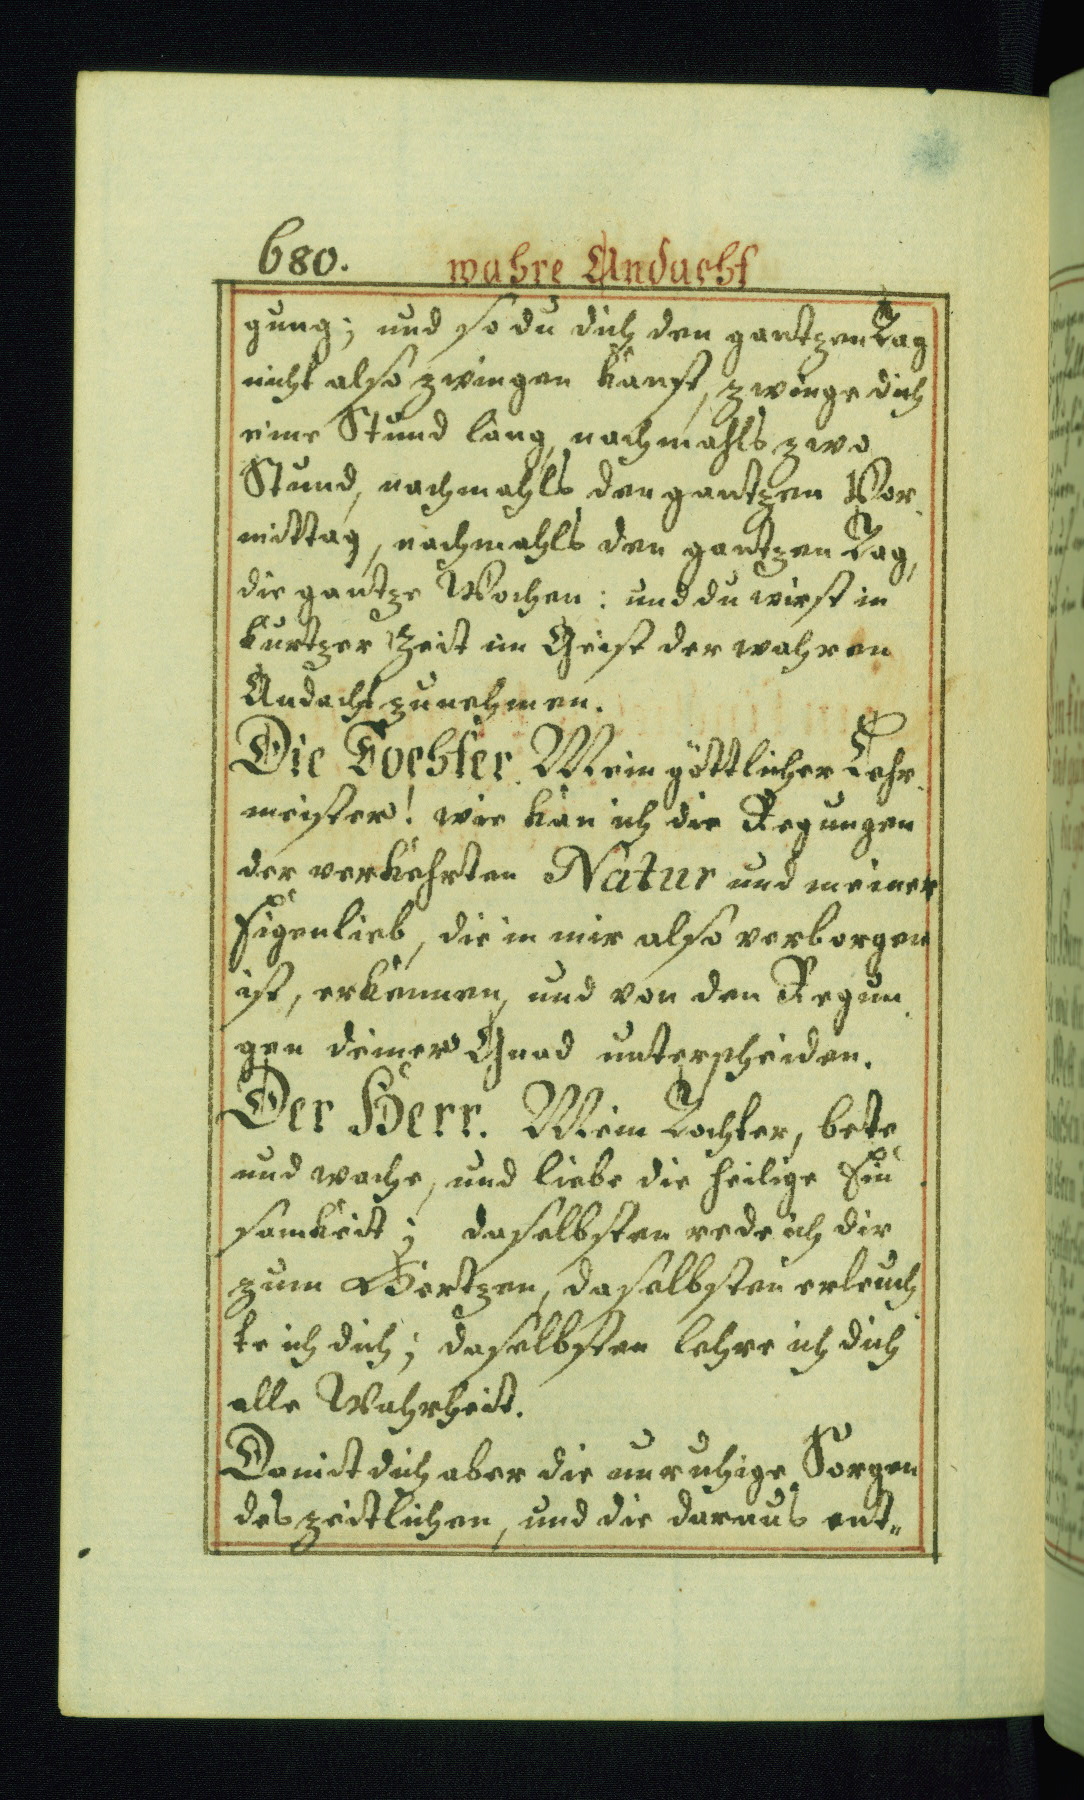 680. wahre Andacht
gung; und so du dich den gantzen Tag
nicht also zwingen kanst, zwinge dich
eine Stund lang, nachmahls zwo
Stund, nachmahls den gantzen Vor
mittag, nachmahls den gantzen Tag,
die gantze Wochen: und du wirst in
kurtzer Zeit im Geist der wahren
Andacht zunehmen.
Die Tochter. Mein göttlicher Lehr
meister! wie kan ich die Regungen
der verkehrten Natur und meiner
Eigenlieb, die in mir also verborgen
ist, erkennen, und von den Regun
gen deiner Gnad unterscheiden.
Der Herr. Mein Tochter, bete
und wache, und liebe die heilige Ein
samkeit; daselbsten rede ich dir
zum Hertzen, daselbsten erleuch
te ich dich; daselbsten lehre ich dich
alle Wahrheit.
Damit dich aber die unruhige Sorgen
des zeitlichen, und die daraus ent„